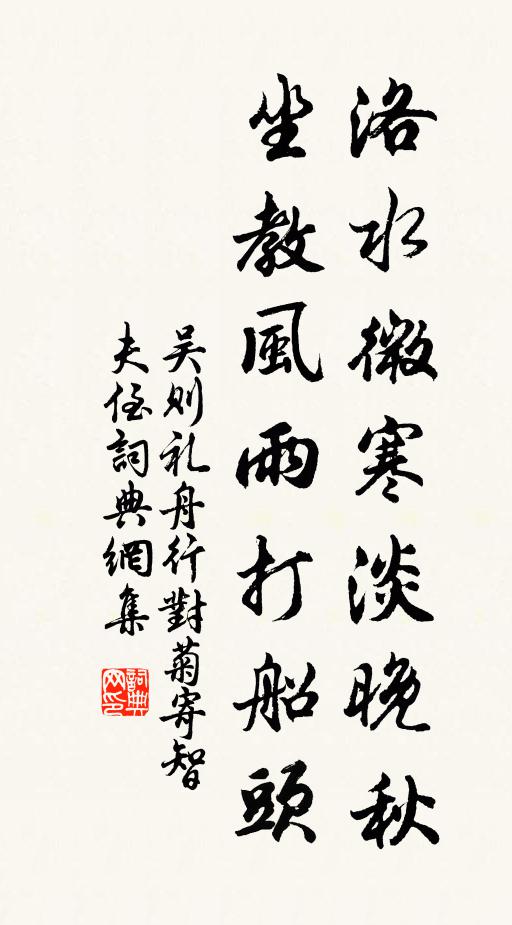 洛水微寒淡晚秋
坐教風雨打船頭
吴则礼舟行對菊寄智
夫侄詞典網集
詞典
网印